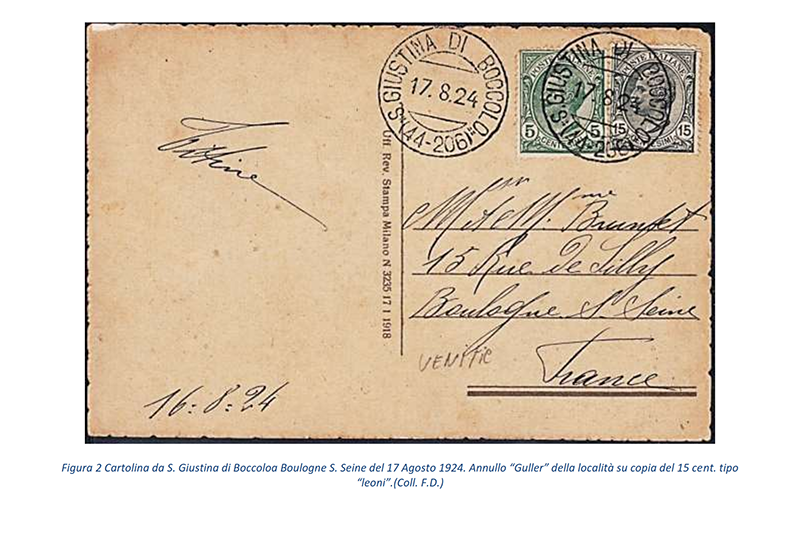 S. GIUSTINA DI BOCCOLO
17.8.24
(44-206)
POSTE ITALIANE
5 5
CENT
POSTE ITALIANE
15 15
CENTESIMI
S. GIUSTINA DI BOCCOLO
17.8.24
(44-206)
Uff. Rev. Stampa Milano N 3235 17 1 1918
Mr & Mme
15 Rue de Silly
Boulogne s/ Seine
France
16=8=24
Figura 2 Cartolina da S. Giustina di Boccoloa Boulogne S. Seine del 17 Agosto 1924. Annullo “Guller” della località su copia del 15 cent. tipo
“leoni”.(Coll. F.D.)